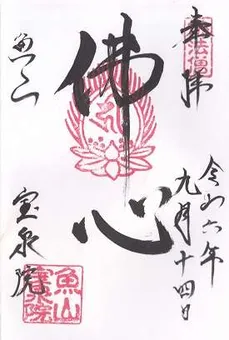 奉拝
令和六年
九月十四日
佛心
魚山
宝泉院
魚山
宝泉院